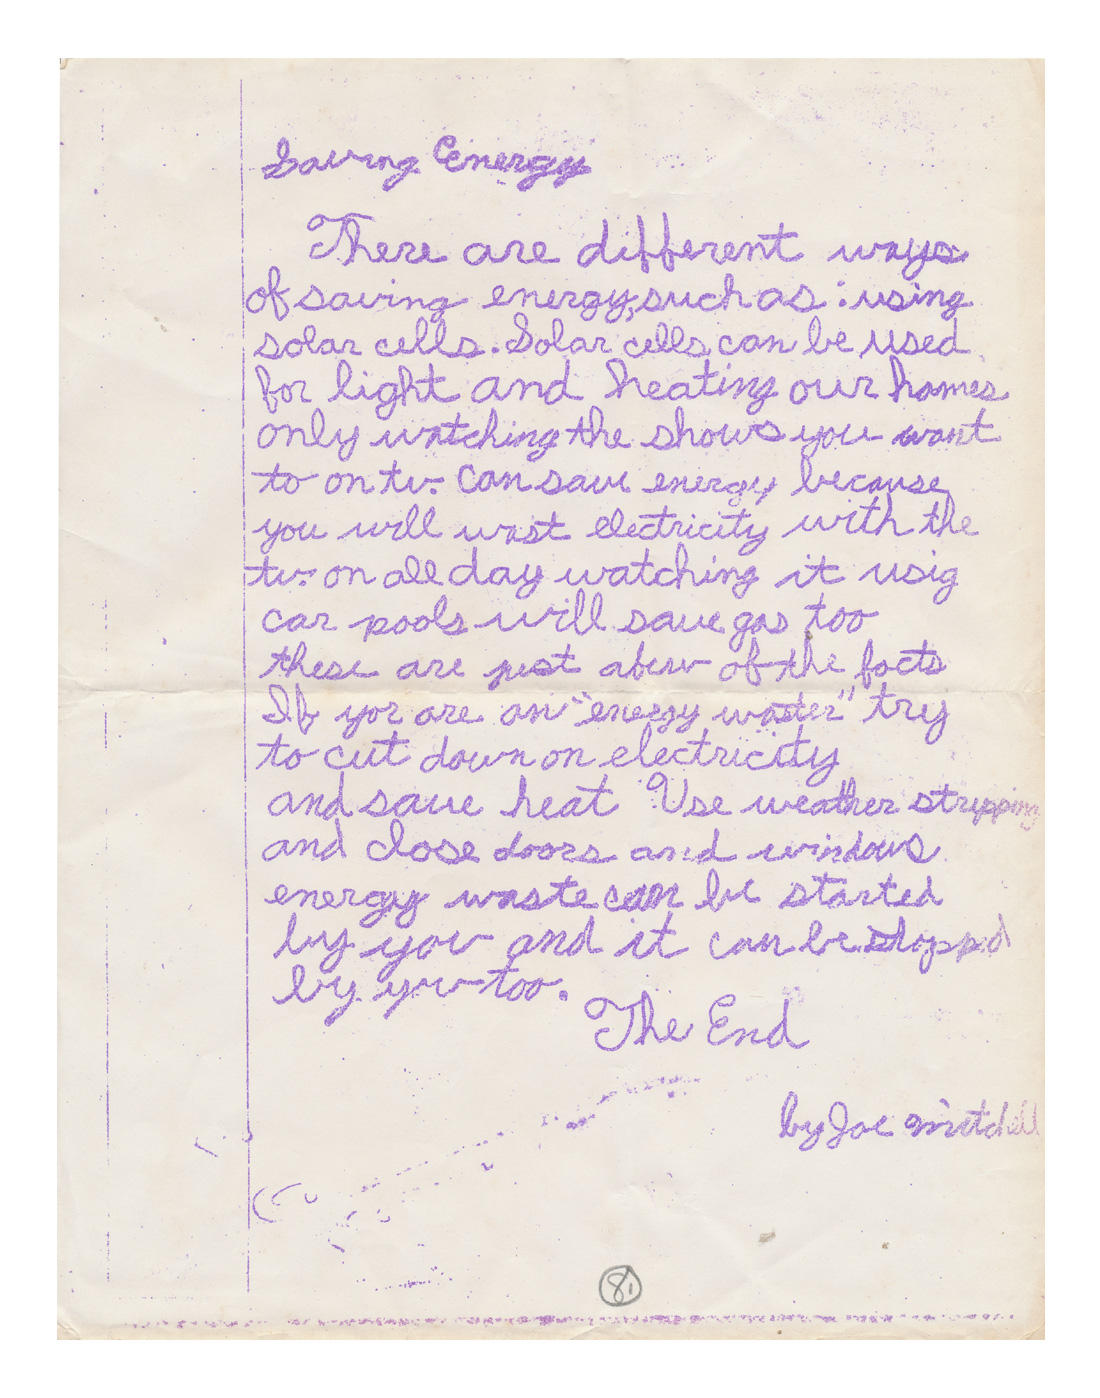 Saving Energy
There are different ways
of saving energy, such as : using
solar cells. Solar cells can be used
for light and heating our homes
only watching the shows you want
to on tv. Can save energy because
you will wast electricity with the
tv. on all day watching it usig
car pools will save gas too
these are just abew of the facts
If yor are an "energy waster" try
to cut down on electricity
and save heat Use weather stripping
and close doors and windows
energy waste can be started
by you and it can be stopped
by you too.
The End
by Joe Mitchell
81